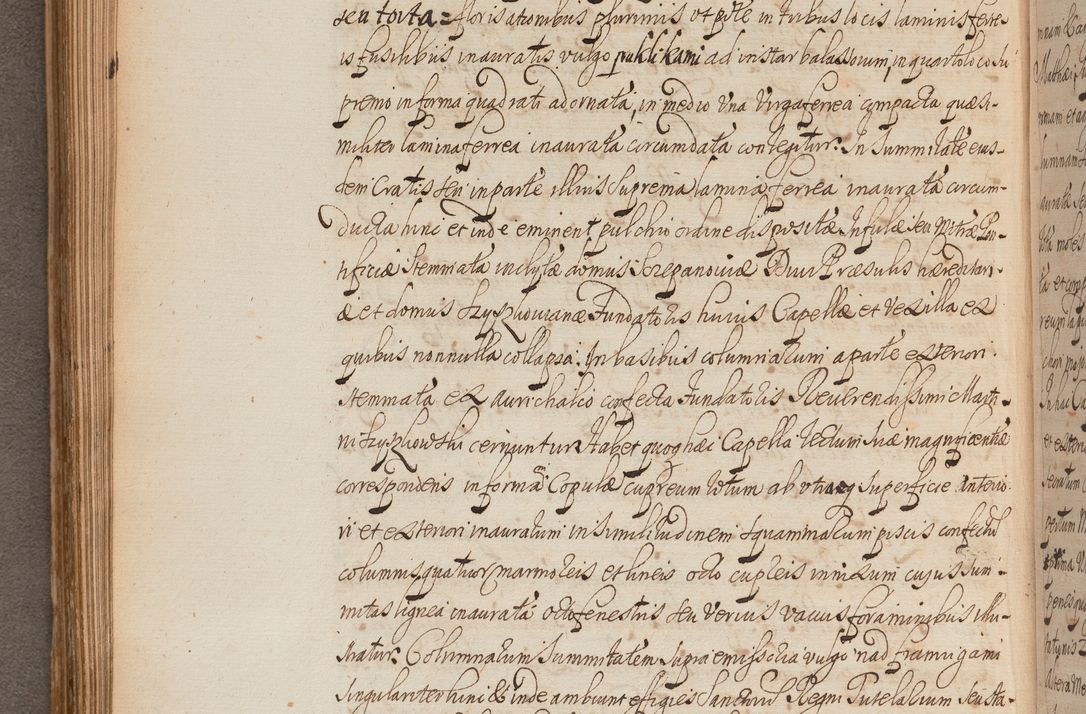 seu torta = florisationibus plurimis ut pote in tribus locis laminis ferre-
is fusilibus inauratis vulgo puklikami ad instar balassorum, in quarto loco su
premo in forma quadrati adornata, in medio una virga ferrea compacta quæ si-
militer lamina ferrea inaurata circumdata contegitur: In summitate eius-
dem Cratis seu in parte illius suprema lamina ferrea inaurata circum-
ducta hinc et inde eminent pulchro ordine dispositæ Infulæ seu Mitræ Pon-
tificiæ Stemmata inclytæ domus Szepanoviæ Divi Præsulis hæreditari-
æ et domus Szyszkovianæ Fundatoris huius Capellæ et Vexilla ex
quibus nonnulla collapsa. In basibus columnarum a parte exteriori
stemmata ex aurichalco confecta Fundatoris Reverendissimi Marti-
ni Szyszkowski cernuntur. Habet quoque hæc Capella tectum suæ magnificentiæ
correspondens in formam Copulæ cupreum totum ab utraq superficie interio-
ri et exteriori inauratum in similitudinem squammarum piscis confectu
columnis quatuor marmoreis et lineis octo cupreis innixum cujus sum-
mitas lignea inaurata octo fenestris seu verius vacuis foraminibus illu-
stratur: Columnarum summitatem supra emissoria vulgo nad framugami
singulariter hinc & inde ambiunt effigies Sanctorum Regni Tutelarium seu sta-